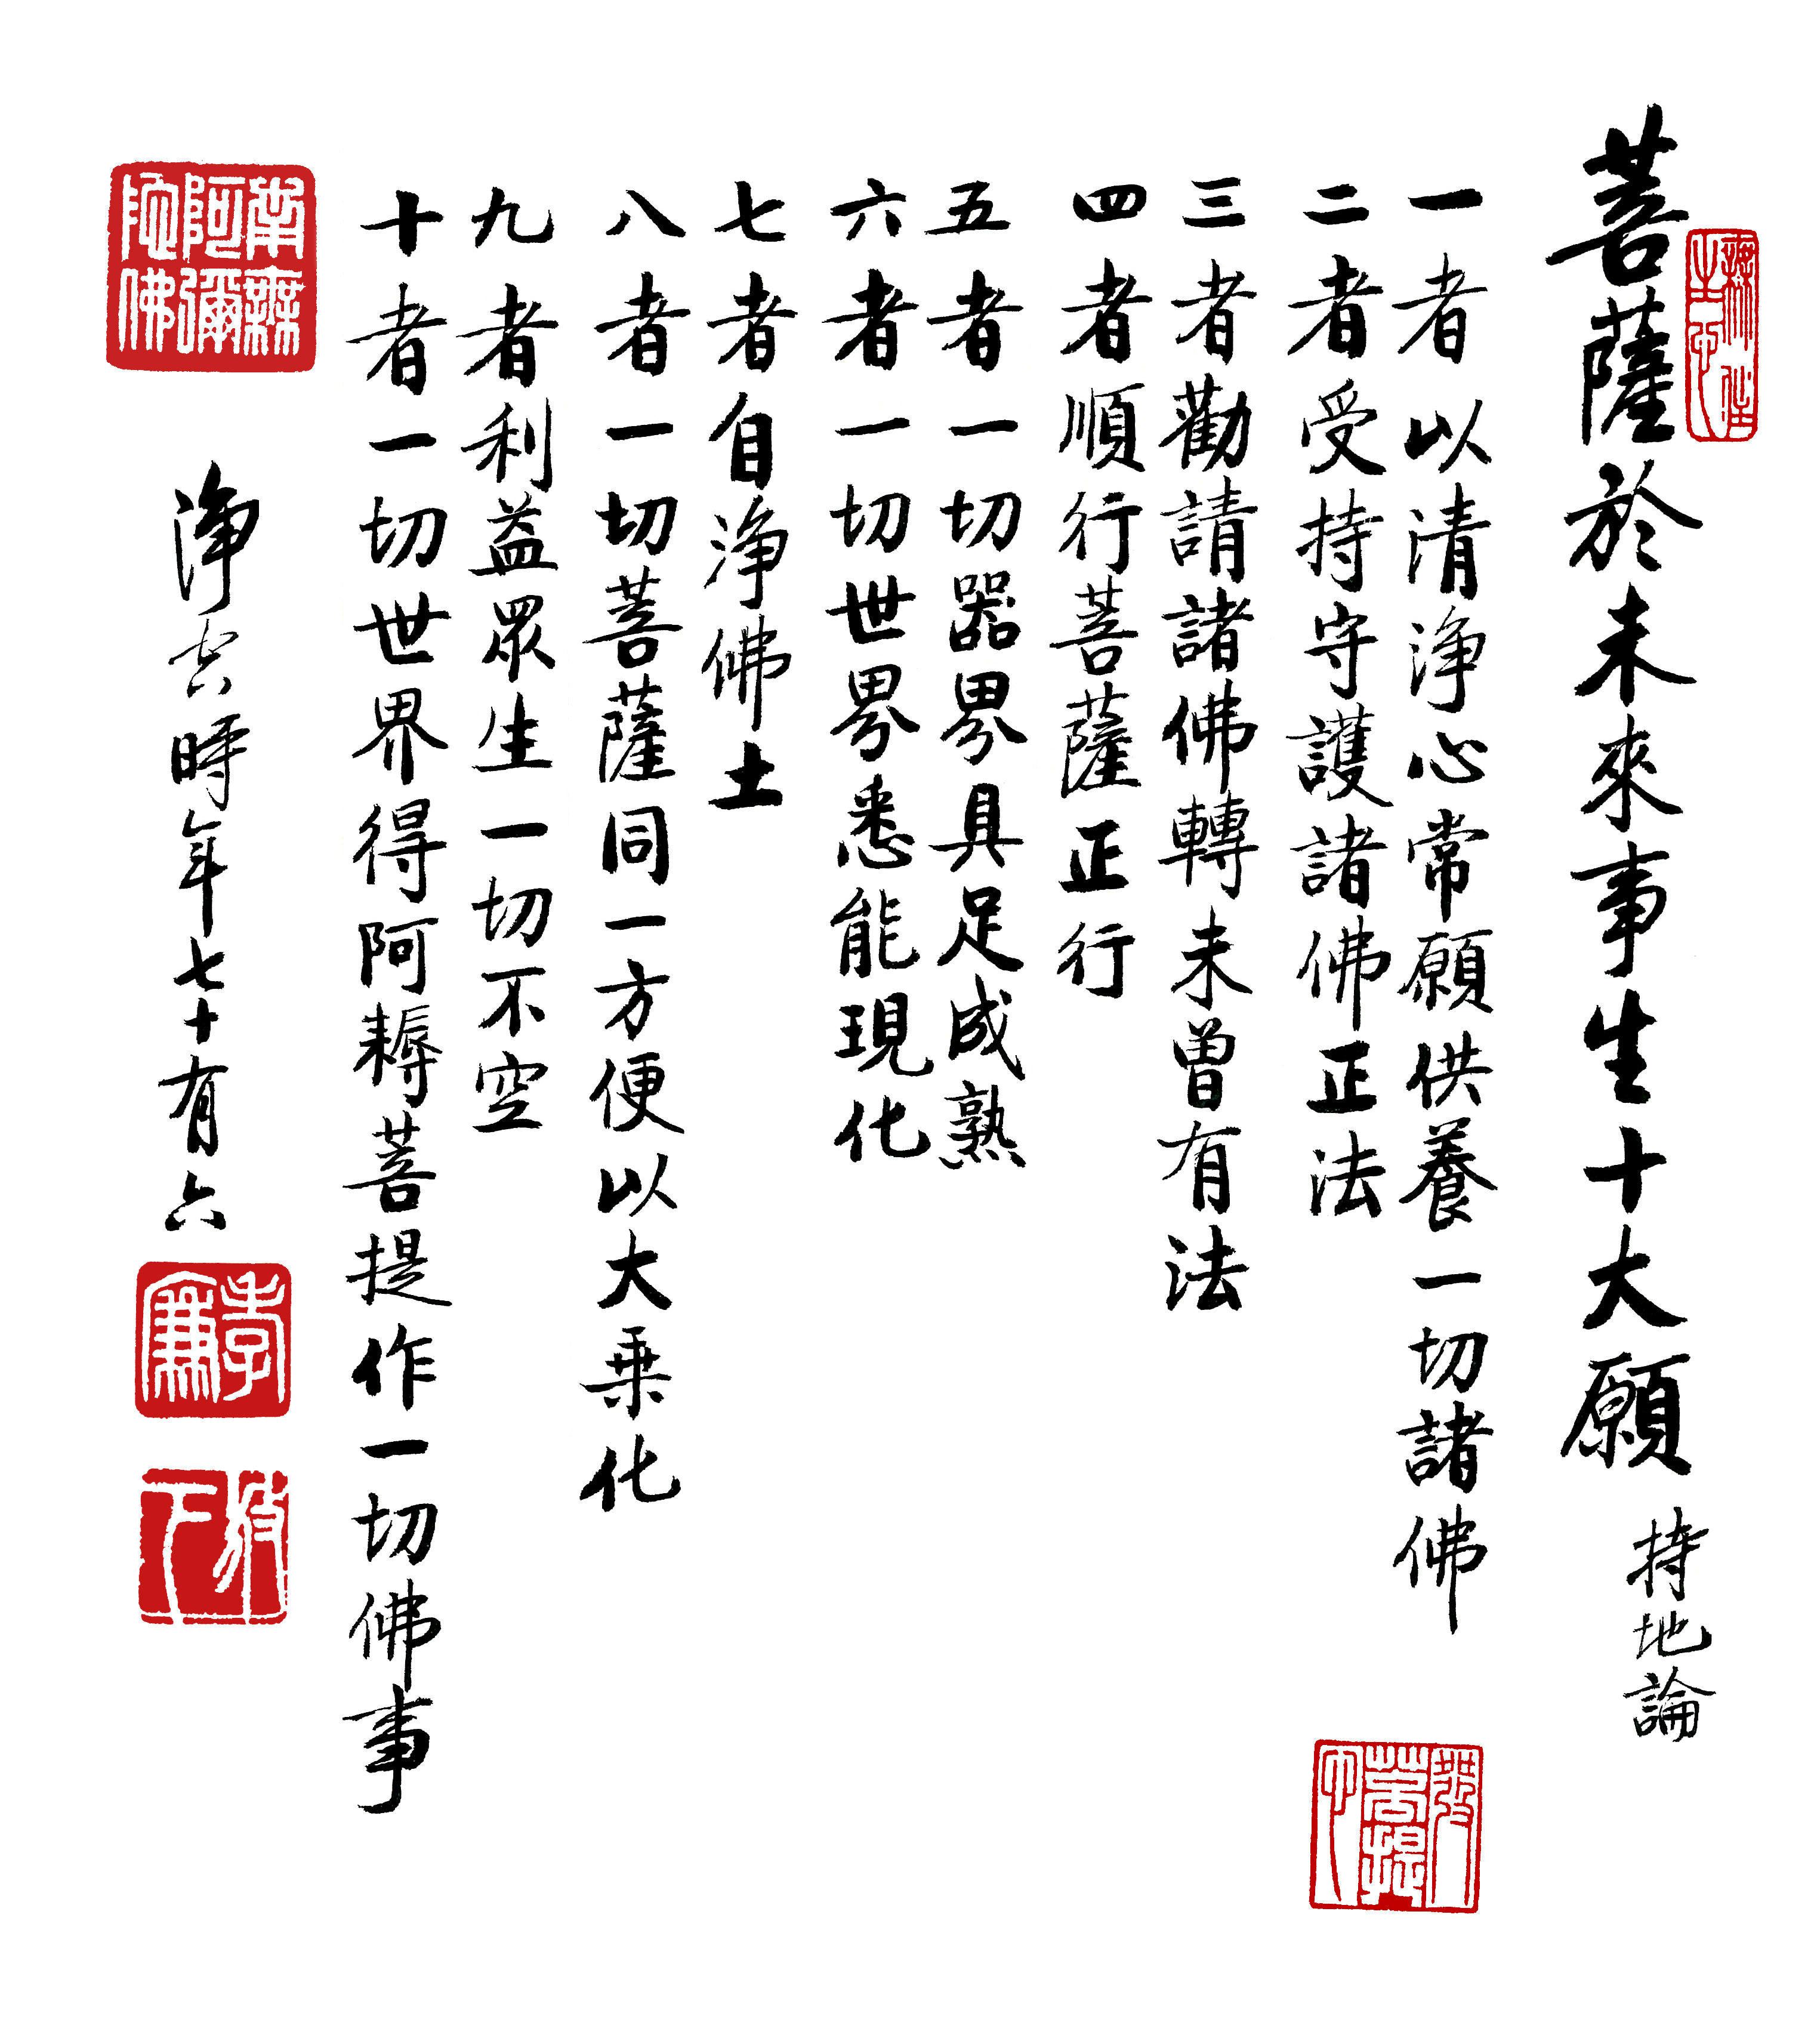 菩薩於未來事生十大願 持地論
無住生心
一者以清淨心常願供養一切諸佛
二者受持守護諸佛正法
三者勸請諸佛轉未曾有法
四者順行菩薩正行
五者一切器界具足成熟
六者一切世界悉能現化
七者自淨佛土
八者一切菩薩同一方便以大乗化
九者利益眾生一切不空
十者一切世界得阿耨菩提作一切佛事
發菩提心
南無阿彌陀佛
淨空時年七十有六
孝廉